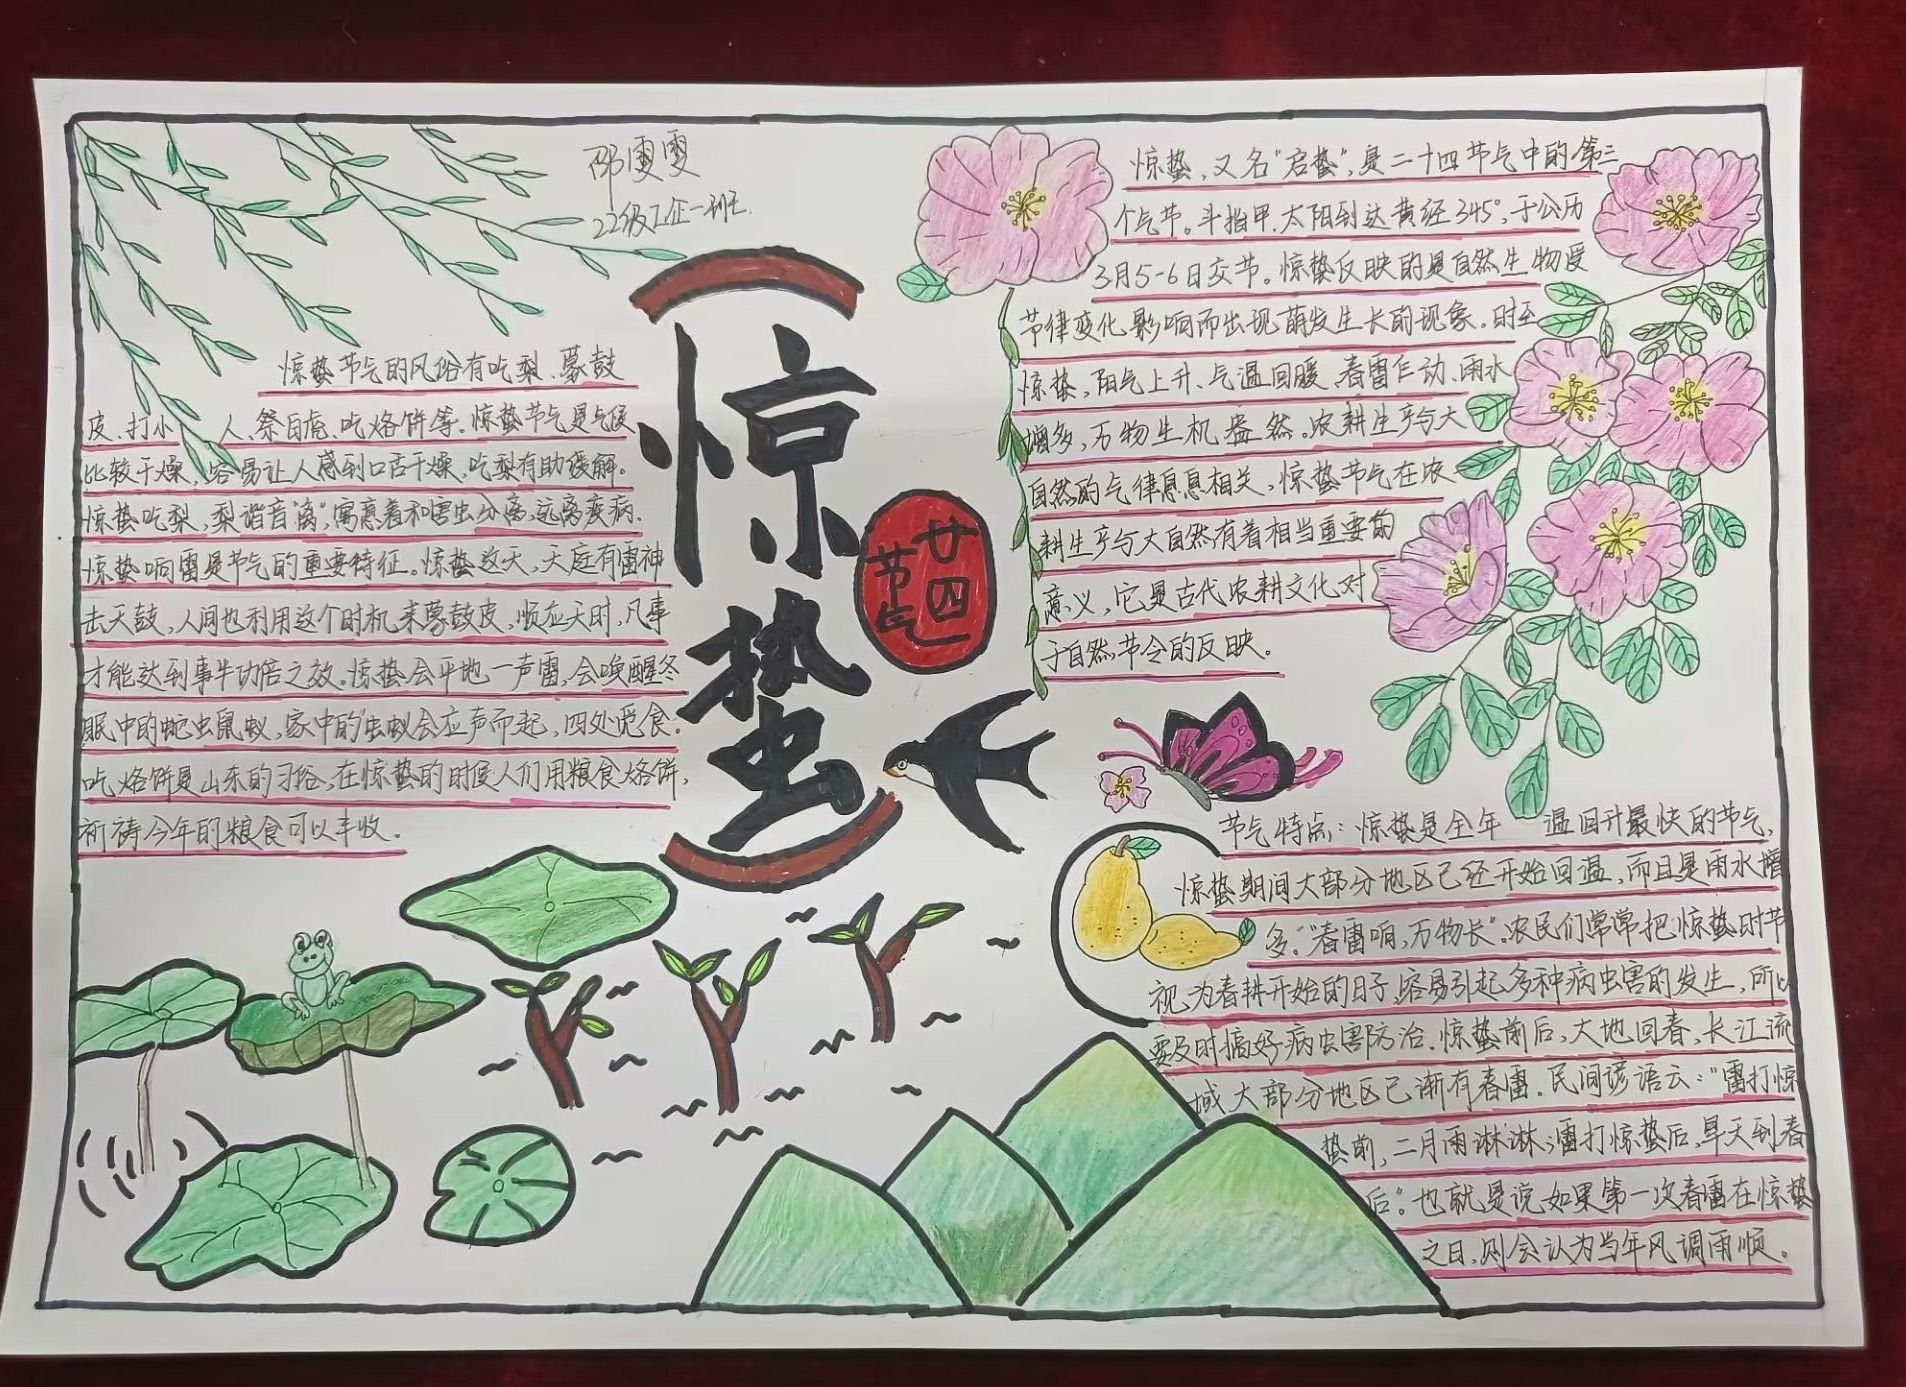 邵雯雯
22级工企一班
惊蛰
廿四
节气
惊蛰节气的风俗有吃梨、蒙鼓
皮、打小人、祭白虎、吃烙饼等。惊蛰节气是气候
比较干燥,容易让人感到口舌干燥,吃梨有助缓解。
惊蛰吃梨,梨谐音“离”,寓意着和害虫分离,远离疫病.
惊蛰响雷是节气的重要特征。惊蛰这天,天庭有雷神
击天鼓,人间也利用这个时机来蒙鼓皮,顺应天时,凡事
才能达到事半功倍之效。惊蛰会平地一声雷,会唤醒冬
眠中的蛇虫鼠蚁,家中的虫蚁会应声而起,四处觅食.
吃烙饼是山东的习俗,在惊蛰的时候人们用粮食烙饼,
祈祷今年的粮食可以丰收.
惊蛰,又名“启蛰”,是二十四节气中的第三
个气节。斗指甲,太阳到达黄经345°,于公历
3月5-6日交节。惊蛰反映的是自然生物受
节律变化影响而出现萌发生长的现象.时至
惊蛰,阳气上升、气温回暖、春雷乍动、雨水
增多,万物生机盎然。农耕生产与大
自然的气律息息相关,惊蛰节气在农
耕生产与大自然有着相当重要的
意义,它是古代农耕文化对
于自然节令的反映。
节气特点:惊蛰是全年 温回升最快的节气,
惊蛰期间大部分地区已经开始回温,而且是雨水增
多.“春雷响,万物长”.农民们常常把惊蛰时节
视为春耕开始的日子,容易引起多种病虫害的发生,所以
要及时搞好病虫害防治.惊蛰前后,大地回春,长江流
域大部分地区已渐有春雷.民间谚语云:“雷打惊
蛰前,二月雨淋淋;雷打惊蛰后,旱天到春
后”.也就是说如果第一次春雷在惊蛰
之日,则会认为当年风调雨顺。